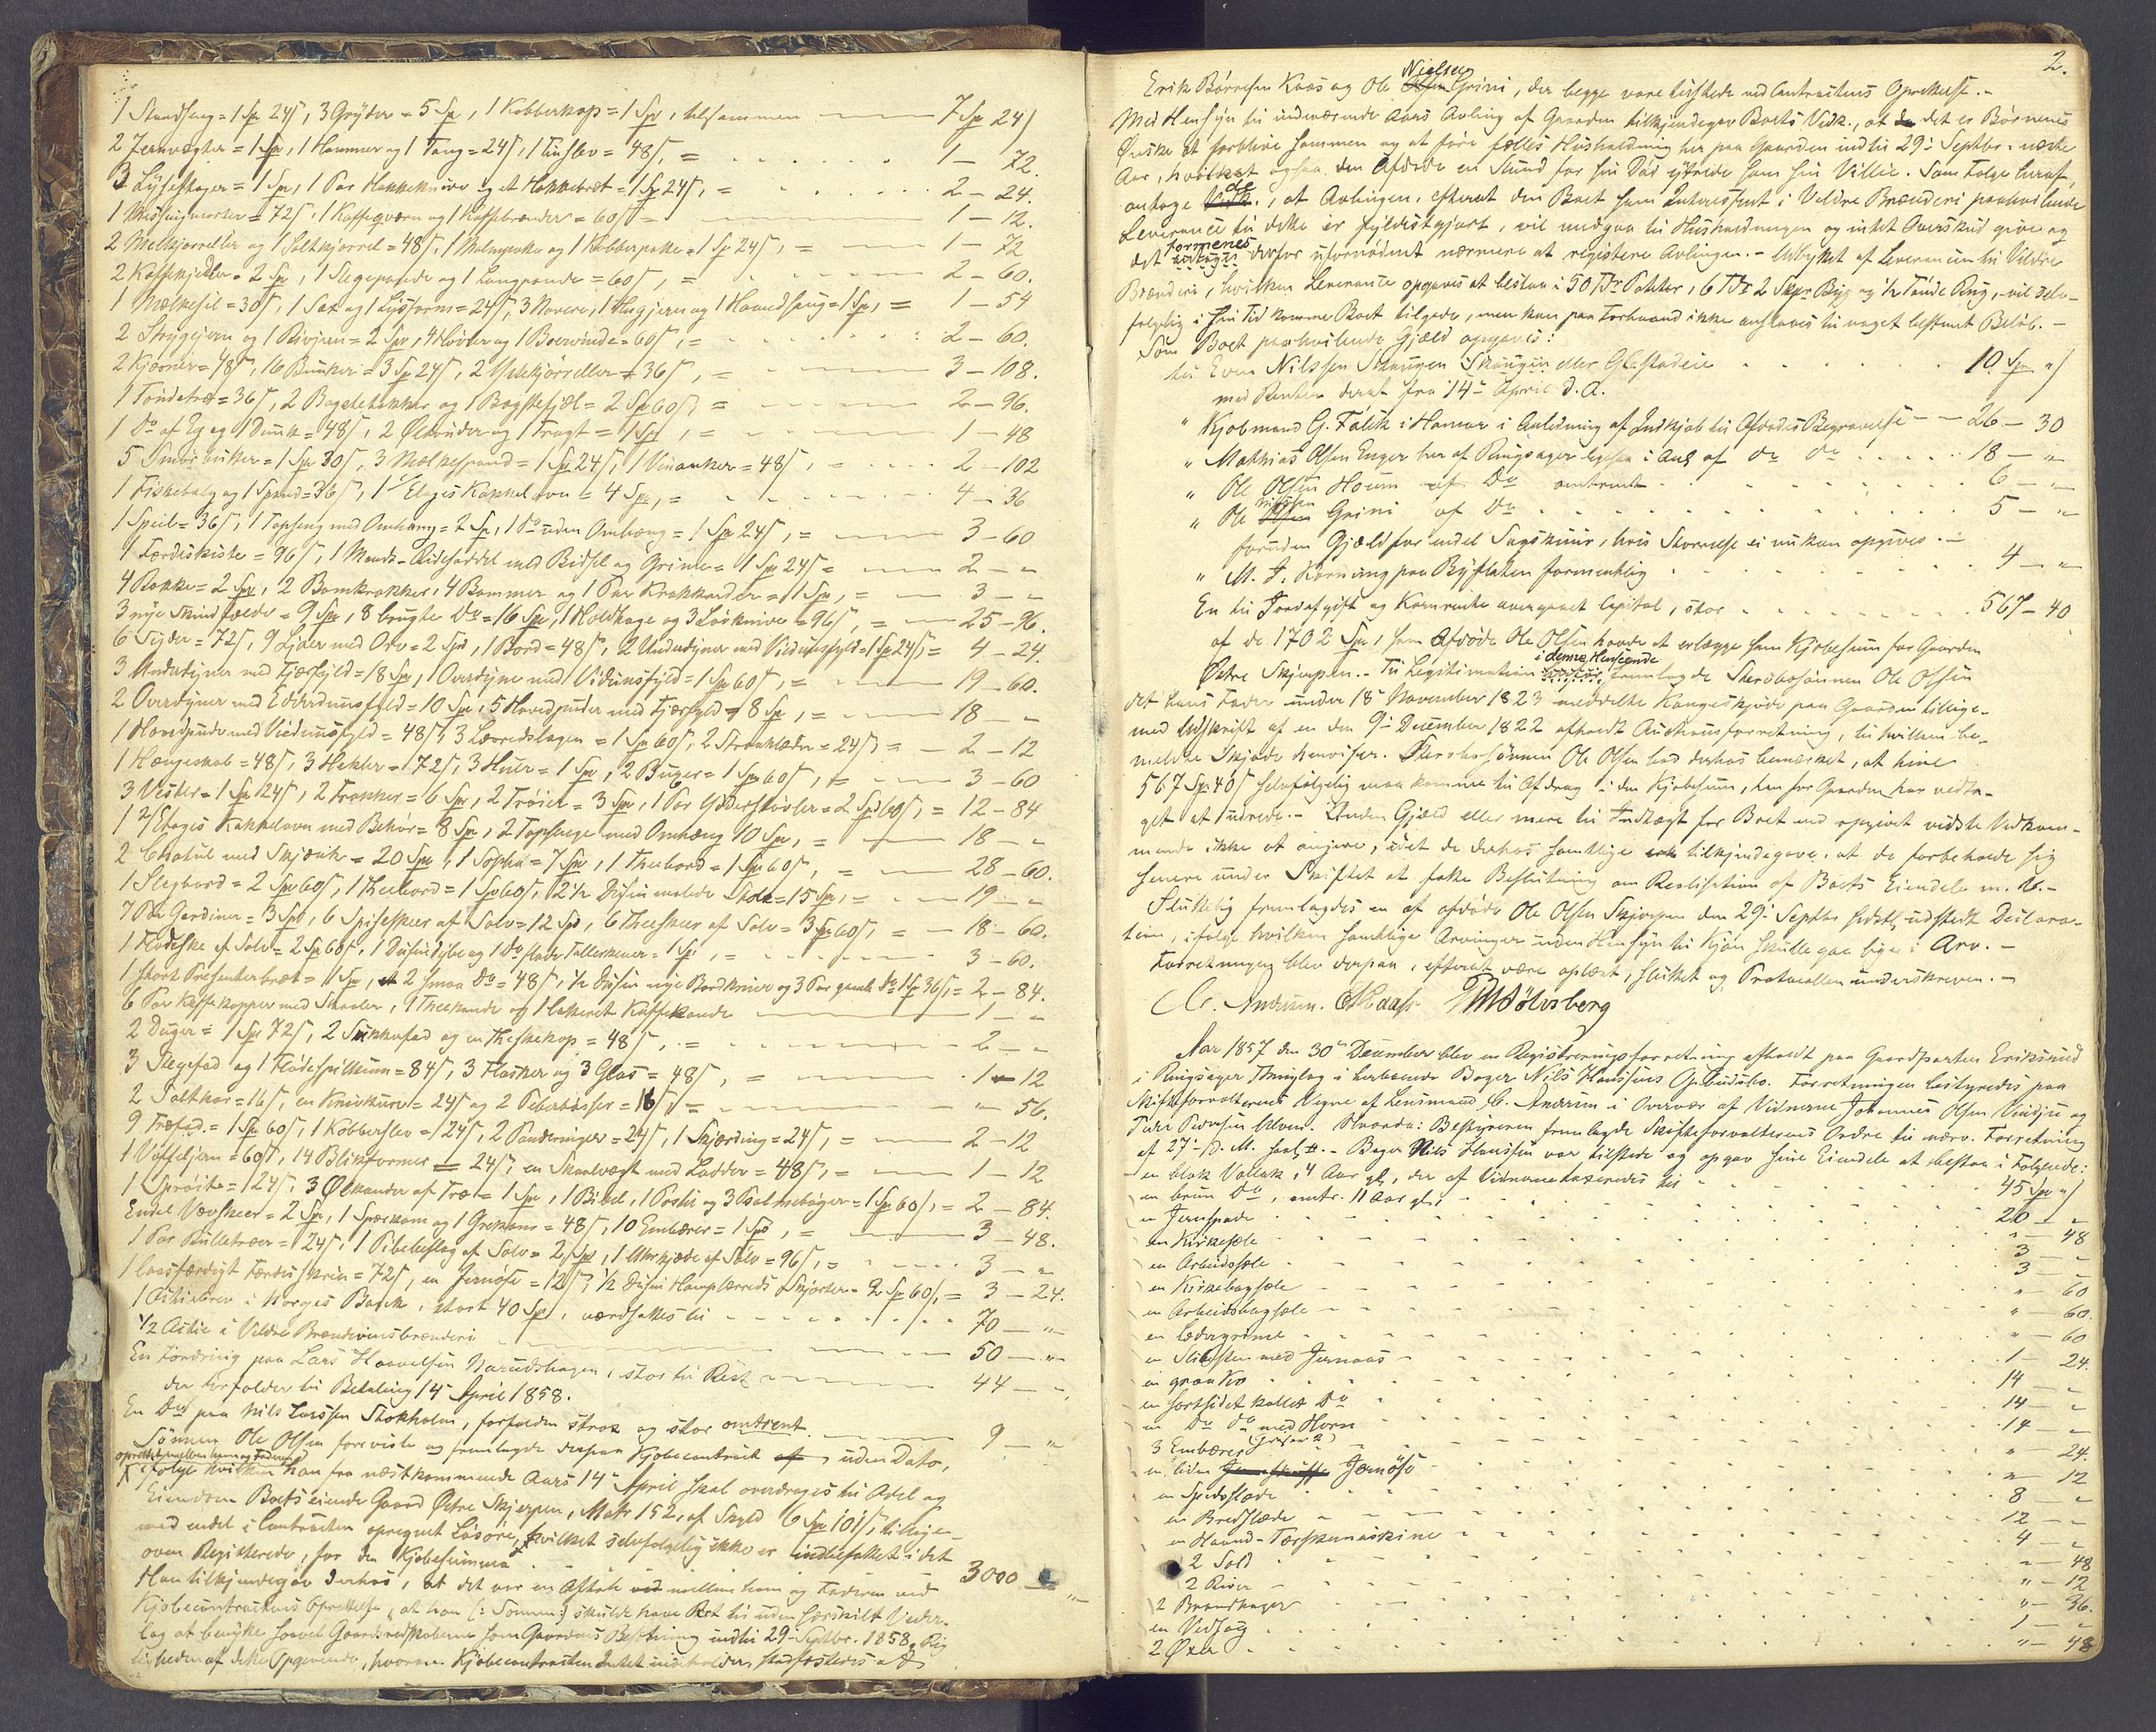 1 Standseng = 1 Sp 24 s, 3 Gryder = 5 Sp, 1 Kobberkop = 1 Sp, tilsammen 7 Sp 24 s
2 Jernvægter = 1 Sp, 1 Hammer og 1 Tang = 24 s, 1 Tinslev = 48 s, = 1 — 72.
3 Lysestager = 1 Sp, 1 Par Hakkeknive og et Hakkebræt = 1 Sp 24 s, = 2 — 24.
1 Messingmorter = 72 s, 1 Kaffeqværn og 1 Kaffebrænder = 60 s = 1 — 12.
2 Melkjørreller og 1 Saltkjørrel = 48 s, 1 Malmpotte og 1 Kobberpotte = 1 Sp 24 s, = 1 — 72
2 Kaffekjedler = 2 Sp, 1 Stegepande og 1 Langpande = 60 s, = 2 — 60.
1 Mælkesil = 30 s, 1 Sax og 1 Lysform = 24 s, 3 Navere, 1 Hugjern og 1 Haandsaug = 1 Sp, = 1 — 54
2 Strygejern og 1 Rivjern = 2 Sp, 4 Høvler og 1 Boervinde = 60 s, = 2 — 60.
2 Kjærner = 48 s, 16 Bunker = 3 Sp 24 s, 2 Ystekjørreller = 36 s, = 3 — 108.
1 Tøndetræ = 36 s, 2 Bagstetakker og 1 Bagstefjæl = 2 Sp 60 s, = 2 — 96.
1 Do af Eg og 1 Dunk = 48 s, 2 Ølkander og 1 Tragt = 1 Sp, = 1 — 48
5 Smørbutter = 1 Sp 30 s, 3 Mælkespand = 1 Sp 24 s, 1 Vinanker = 48 s, = 2 — 102
1 Fiskebalg og 1 Spand = 36 s, 1 Etages Kakkelovn = 4 Sp, = 4 — 36
1 Speil = 36 s, 1 Topseng med Omhæng = 2 Sp, 1 Do uden Omhæng = 1 Sp 24 s, = 3 — 60
1 Færdeskiste = 96 s, 1 Mands-Ridesaddel med Bidsel og Grime = 1 Sp 24 s = 2 — "
4 Rokke = 2 Sp, 2 Bomkrakker, 4 Bommer og 1 Par Krakkarder = 1 Sp, = 3 — "
3 nye Skindfælde = 9 Sp, 8 brugte Do = 16 Sp, 1 Holdhage og 3 Løvknive = 96 s, = 25 — 96.
6 Sigder = 72 s, 9 Ljaaer med Orv = 2 Spd, 1 Bord = 48 s, 2 Underdyner med Vidunsfyld = 1 Sp 24 s, = 4 — 24.
3 Underdyner med Fjærfyld = 18 Sp, 1 Overdyne med Vidunsfyld = 1 Sp 60 s, = 19 — 60.
2 Overdyner med Edderdunsfyld = 10 Sp, 5 Hovedpuder med Fjærfyld = 8 Sp, = 18 — "
1 Hovedpude med Vidunsfyld = 48 s, 3 Lærredslagen = 1 Sp 60 s, 2 = 24 s, = 2 — 12
1 Hængeskab = 48 s, 3 Hekler = 72 s, 3 Huer = 1 Sp, 2 Buxer = 1 Sp 60 s, = 3 — 60
3 Vester = 1 Sp 24 s, 2 Frakker = 6 Sp, 2 Trøier = 3 Sp, 1 Par Støvler = 2 Sp 60 s, = 12 — 84
1 2/Etages Kakkelovn med Behør = 8 Sp, 2 Topsenge med Omhæng 10 Sp, = 18 — "
2 Chatul med Skjænk = 20 Sp, 1 Sopha = 7 Sp, 1 Theebord = 1 Sp 60 s, = 28 — 60.
1 Slagbord = 2 Sp 60 s, 1 Theebord = 1 Sp 60 s, 2 1/2 Dusin malede Stole = 15 Sp, = 19 — "
7 Par Gardiner = 3 Sp, 6 Spiseskeer af Sølv = 12 Spd, 6 Theeskeer af Sølv = 3 Sp 60 s, = 18 — 60.
1 Flødeske af Sølv = 2 Sp 60 s, 1 Dusin dybe og 1 Do flade Tallerkener = 1 Sp, = 3 — 60.
1 stort Præsenterbræt = 1 Sp, 2 smaa Do = 48 s, 1/2 Dusin nye Bordknive og 3 Par gamle Do 1 Sp 36 s, = 2 — 84.
6 Par Kaffekopper med Skaaler, 1 Theekande og 1 lakeret Kaffekande 1 — "
2 Duger = 1 Sp 72 s, 2 Sukkerfad og en Theskekop = 48 s, = 2 — "
3 Stegefad og 1 Flødespilkum = 84 s, 3 Flasker og 3 Glas = 48 s, = 1 — 12
2 Saltkar = 16 s, en Knivkurv = 24 s og 2 Peberbøsser = 16 s = " — 56.
9 Træfad = 1 Sp 60 s, 1 Kobberslev = 24 s, 2 Panderinger = 24 s, 1 Skjærding = 24 s, = 2 — 12
1 Vaffeljern = 60 s, 14 Blikformer = 24 s, en Skaalvægt med Lodder = 48 s, = 1 — 12
1 Sprøite = 24 s, 3 Ølkander af Træ = 1 Sp, 1 Bibel, 1 Postil og 3 Psalmebøger = 1 Sp 60 s, = 2 — 84.
Endel Vævskeer = 2 Sp, 1 Spærkam og 1 = 48 s, 10 Embærer = 1 Spd, = 3 — 48.
1 Par Rulletræer = 24 s, 1 Pibebeslag af Sølv = 2 Sp, 1 Uhrkjæde af Sølv = 96 s, = 3 — "
1 laasfærdigt Færdesskrin = 72 s, en Jernøse = 12 s, 1/2 Dusin Hamplærreds Skjorter = 2 Sp 60 s, = 3 — 24.
1 Actiebrev i Norges Bank, stort 40 Sp, værdsattes til 70 — "
1/2 Actie i Veldre Brændeviinsbrænderi 50 — "
En Fordring paa Lars Haavelsen Narudshagen, stor til Rest 44 — "
der forfalder til Betaling 14 April 1858.
En Do paa Nils Larssen Stokholm, forfalden strax og stor omtrent 9 — "
Sønnen Ole Olsen foreviste og fremlagde derpaa Kjøbecontract uden Dato,
oprettet mellem ham og Faderen
ifølge hvilken han fra næstkommende Aars 14de April skal overdrages til Odel og
Eiendom Boets eiende Gaard Østre Skjerpen, Matr 152, af Skyld 6 Sp 101 s, tillige-
med endel i Contracten opregnet Løsøre, hvilket selvfølgelig ikke er indbefattet i det
oven Registerede, for den Kjøbesumma 3000 — "
Han tilkjendegav derhos, at det var en Aftale mellem ham og Faderen ved
Kjøbecontractens Oprettelse, at han (: Sønnen :) skulde have Ret til uden særskilt Veder-
lag at benytte saavel Gaardsredskaberne som Gaardens Besætning indtil 29 Septbr. 1858. Rig-
tigheden af dette Opgivende, hvorom Kjøbecontracten Intet indeholder, stadfæstedes af
2.
Nielsen
Erik Børresen Kaas og Ole Olsen Grini, der begge vare tilstede ved Contractens Oprettelse. —
Med Hensyn til indeværende Aars Avling af Gaarden tilkjendegav Boets Vedk., at det er Børnenes
Ønske at forblive sammen og at føre fælles Husholdning her paa Gaarden indtil 29 Septbr. næste
Aar, hvilket ogsaa den Afdøde en Stund før sin Død ytrede som sin Villie. Som Følge heraf
de
antoge Vedk., at Avlingen, efterat den Boet som Interessent i Veldre Brænderi paahvilende
Leverance til dette er fyldestgjort, vil medgaa til Husholdningen og intet Overskud give og
formenes
det derfor ufornødent nærmere at registere Avlingen. — Udbyttet af Leverancen til Veldre
Brænderi, hvilken Leverance opgaves at bestaa i 50 Tdr Poteter, 6 Tdr 2 Skpr Byg og 1/2 Tønde Rug, vil selv-
følgelig i sin Tid komme Boet tilgode, men kan paa Forhaand ikke anslaaes til noget bestemt Beløb. —
Som Boet paahvilende Gjæld opgaves:
til Even Nilssen Skaugen eller 10 Sp " s
med Renter deraf fra 14 April d. A.
" Kjøbmand G. Falck i Hamar i Anledning af Indkjøb til Afdødes Begravelse — 26 — 30
" Mathias Olsen Enger her af Ringsager ligesaa i Anl af Do Do 18 — "
" Ole Olsen Houm af Do omtrent 6 — "
Nielsen
" Ole Olsen Grini af Do 5 — "
foruden Gjæld for endel Sagskuur, hvis Størrelse ei nu kan opgives. —
" M. J. Berning paa Byflaten formentlig 4 — "
En til Jordafgift og Kornrente overgaaet Capital, stor 567 — 40
af de 1702 Sp, som Afdøde Ole Olsen havde at erlægge som Kjøbesum for Gaarden
i denne Henseende
Østre Skjerpen. — Til Legitimation fremlagde Stervbosønnen Ole Olsen
det hans Fader under 18 November 1823 meddelte Kongeskjøde paa Gaarden tillige-
med Udskrift af en den 9 December 1822 afholdt Auctionsforretning, til hvilken be-
meldte Skjøde henviser. Stervbosønnen Ole Olsen bad derhos bemærket, at hine
567 Sp 40 s selvfølgelig maa komme til Afdrag i den Kjøbesum, han for Gaarden har vedta-
get at udrede. — Anden Gjæld eller mere til Indtægt for Boet end opgivet vidste Vedkom-
mende ikke at angive, idet de derhos samtlige tilkjendegave, at de forbeholde sig
senere under Skiftet at fatte Beslutning om Realisation af Boets Eiendele m. v. —
Sluttelig fremlagdes en af afdøde Ole Olsen Skjerpen den 29 Septbr sidstl. udstedt Declara-
tion, ifølge hvilken samtlige Arvinger uden Hensyn til Kjøn skulle gaae lige i Arv. —
Forretningen blev derpaa, efterat være oplæst, sluttet og Protocollen underskreven. —
Chr. Andersen.
Aar 1857 den 30 December blev en Registreringsforretning afholdt paa Gaardparten Eriksrud
i Ringsager Thinglag i herboende Bager Nils Hanssens Opbudsbo. Forretningen bestyredes paa
Skifteforvalterens Vegne af Lensmand C. Andersen i Overvær af Vidnerne Johannes Olsen og
Peder Pedersen. Hvorda: Bestyreren fremlagde Skifteforvalterens Ordre til nærv. Forretning
af 27 d. M. — Bager Nils Hanssen var tilstede og opgav sine Eiendele at bestaa i Følgende:
en blak Vallak, 4 Aar gl., der af Vidnerne taxeredes til 45 Sp " s
en brun Do, omtr. 11 Aar gl., 20 — "
en Jernspade " — 48
en Kirkesæle 3 — "
en Arbeidssæle 3 — "
en Kirkebagsæle " — 60
en Arbeidsbagsæle " — 60.
en Lædergrime " — 60
en Slibesten med Jernaas 1 — 24.
en graa Ko 14 — "
en sortsidet kollet Do 14 — "
en Do Do med Horn 14 — "
3 Embærer " — 24.
en liden Jernøse " — 12
en Spidsslæde 8 — "
en Bredslæde 12 — "
en Haand-Tærskemaskine 4 — "
2 Sold " — 48
2 River " — 12
2 Brandhager " — 36.
en Vedsag 1 — "
2 Øxer " — 48